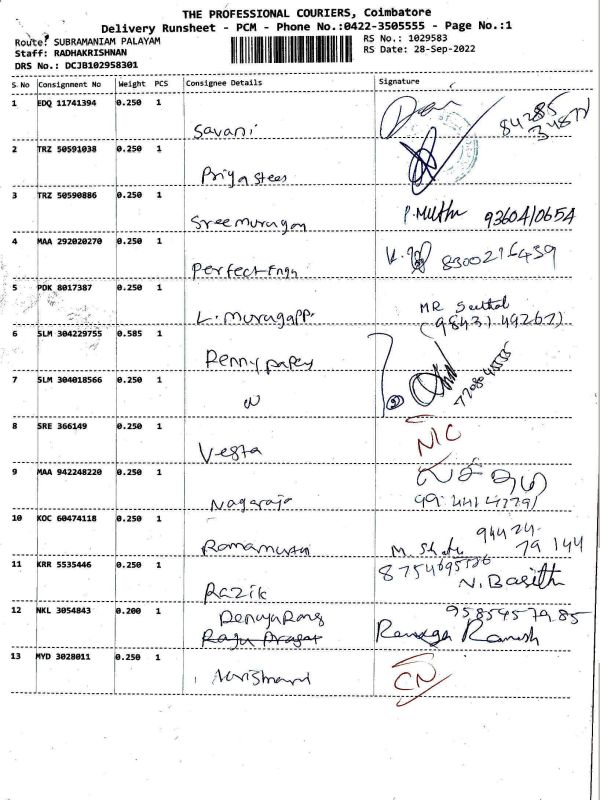 THE PROFESSIONAL COURIERS, Coimbatore
Delivery Runsheet - PCM - Phone No.:0422-3505555 - Page No.:1
Route: SUBRAMANIAM PALAYAM
RS No.: 1029583
Staff: RADHAKRISHNAN
RS Date: 28-Sep-2022
DRS No.: DCJB102958301
S No Consignment No Weight PCS Consignee Details Signature
1 EDQ 11741394 0.250 1
Savani
2 TRZ 50591038 0.250 1
Priya Stees
3 TRZ 50590886 0.250 1
Sree murugan P. Muthu 9360410654
4 MAA 292020270 0.250 1
Perfect Engg 8300216439
5 PDK 8017387 0.250 1
L. Murugapp. MR
(98431 49267)
6 SLM 304229755 0.585 1
Penny paper
7 SLM 304018566 0.250 1
7708045555
8 SRE 366149 0.250 1
Vesta N/C
9 MAA 942248220 0.250 1
Nagaraja
10 KOC 60474118 0.250 1
94424
Ramamurthi 79144
11 KRR 5535446 0.250 1
8754695586
Razik N. Basith
12 NKL 3054843 0.200 1
9585457985
Renuga Ramesh
13 MYD 3028011 0.250 1
CN